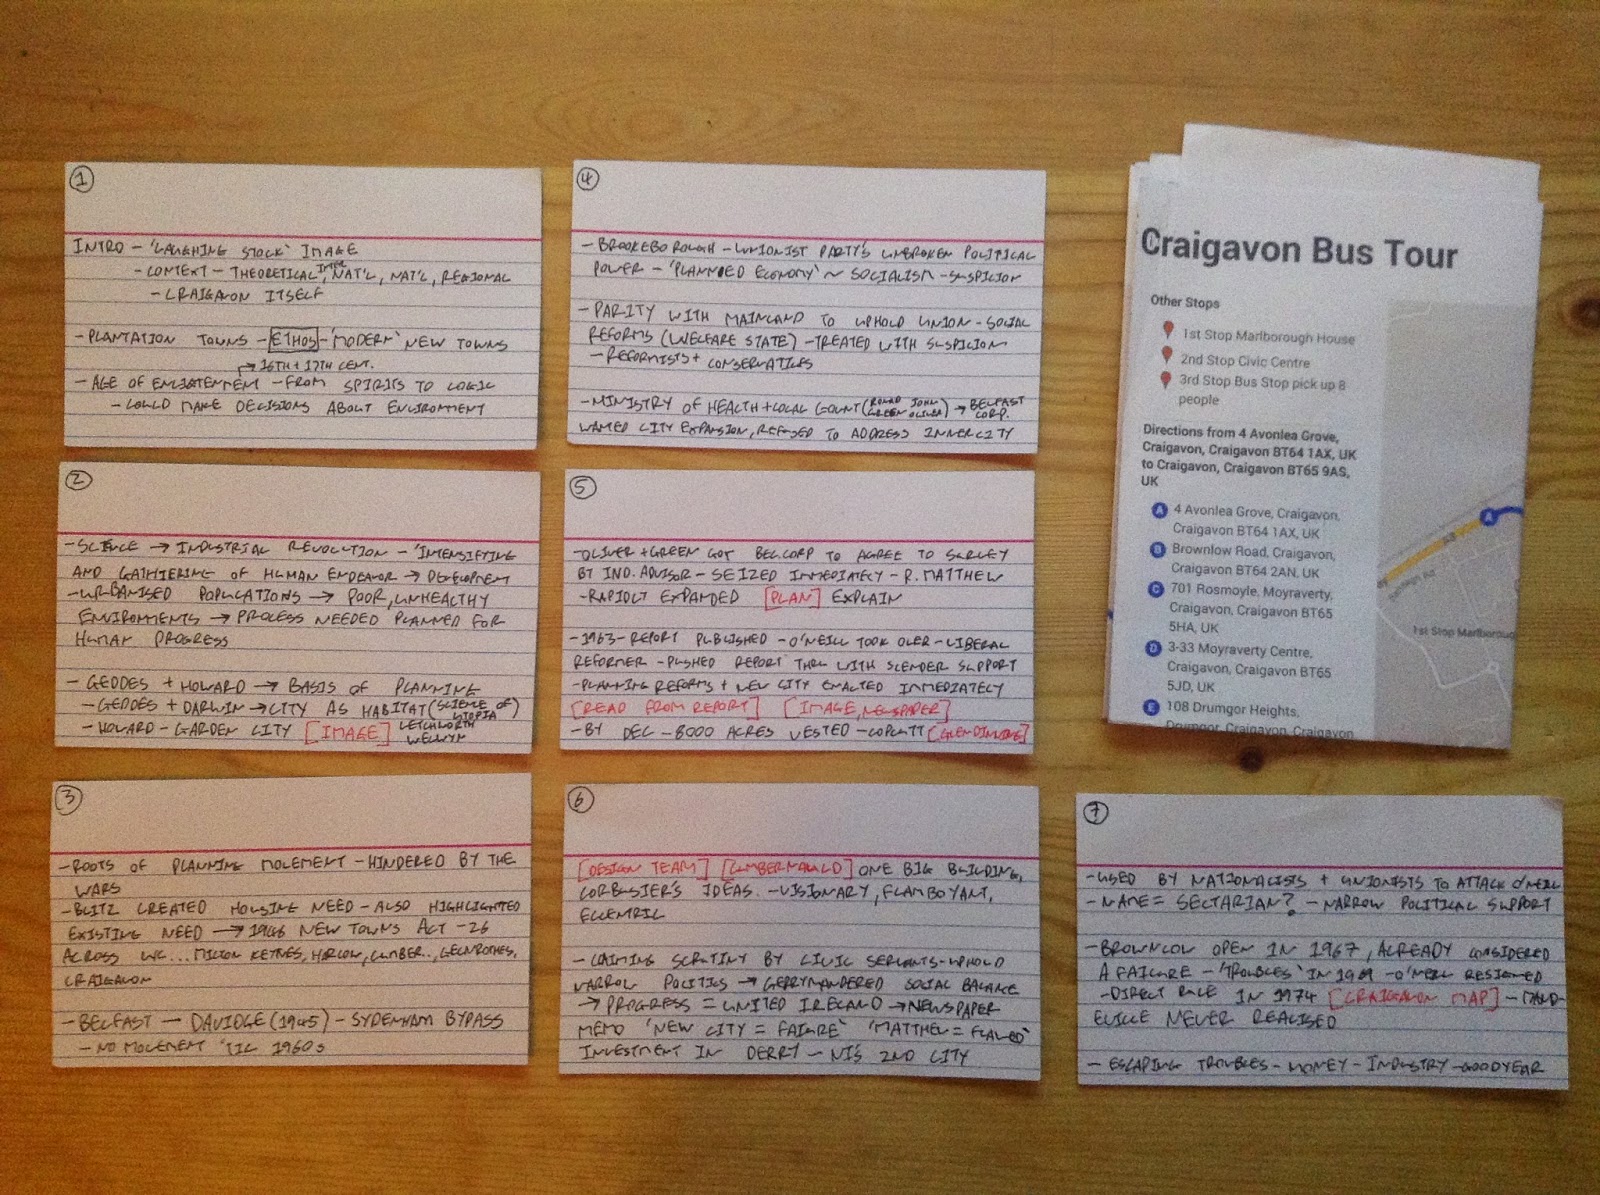 1
INTRO - 'LAUGHING STOCK' IMAGE
- CONTEXT - THEORETICAL, INTER NAT'L, NAT'L, REGIONAL
- CRAIGAVON ITSELF
- PLANTATION TOWNS - ETHOS - 'MODERN' NEW TOWNS
→ 16TH + 17TH CENT.
- AGE OF - FROM SPIRITS TO LOGIC
- COULD MAKE DECISIONS ABOUT ENVIRONMENT
2
- SCIENCE → INDUSTRIAL REVOLUTION - 'INTENSIFYING
AND GATHERING OF HUMAN ENDEAVOR → DEVELOPMENT
- URBANISED POPULATIONS → POOR, UNHEALTHY
ENVIRONMENTS → PROCESS NEEDED PLANNED FOR
HUMAN PROGRESS
- GEDDES + HOWARD → BASIS OF PLANNING
- GEDDES + DARWIN → CITY AS HABITAT (SCIENCE OF UTOPIA)
- HOWARD - GARDEN CITY [IMAGE] LETCHWORTH
WELWYN
3
- ROOTS OF PLANNING MOVEMENT - HINDERED BY THE
WARS
- BLITZ CREATED HOUSING NEED - ALSO HIGHLIGHTED
EXISTING NEED → 1946 NEW TOWNS ACT - 26
ACROSS UK... MILTON KEYNES, HARLOW, CUMBER.., GLENROTHES,
CRAIGAVON
- BELFAST - DAVIDGE (1945) - SYDENHAM BYPASS
- NO MOVEMENT 'TIL 1960s
4
- BROOKEBOROUGH - UNIONIST PARTY'S UNBROKEN POLITICAL
POWER - 'PLANNED ECONOMY' ~ SOCIALISM - SUSPICION
- PARITY WITH MAINLAND TO UPHOLD UNION - SOCIAL
REFORMS (WELFARE STATE) - TREATED WITH SUSPICION
- REFORMISTS + CONSERVATIVES
- MINISTRY OF HEALTH + LOCAL GOVNT (RONALD GREEN JOHN OLIVER) → BELFAST CORP.
WANTED CITY EXPANSION, REFUSED TO ADDRESS INNER CITY
5
- OLIVER + GREEN GOT BEL.CORP TO AGREE TO SURVEY
BY IND. ADVISOR - SEIZED IMMEDIATELY - R. MATTHEW
- RAPIDLY EXPANDED [PLAN] EXPLAIN
- 1963 - REPORT PUBLISHED - O'NEILL TOOK OVER - LIBERAL
REFORMER - PUSHED REPORT THRU WITH SLENDER SUPPORT
- PLANNING REFORMS + NEW CITY ENACTED IMMEDIATELY
[READ FROM REPORT] [IMAGE, NEWSPAPER]
- BY DEC - 8000 ACRES VESTED - COPCUTT [GLENDINNING]
6
[DESIGN TEAM] [CUMBERNAULD] ONE BIG BUILDING,
CORBUSIER'S IDEAS. - VISIONARY, FLAMBOYANT,
ECCENTRIC
- CLAIMING SCRUTINY BY CIVIC SERVANTS - UPHOLD
NARROW POLITICS → GERRYMANDERED SOCIAL BALANCE
→ PROGRESS = UNITED IRELAND → NEWSPAPER
MEMO 'NEW CITY = FAILURE' 'MATTHEW = FLAWED'
INVESTMENT IN DERRY - NI'S 2ND CITY
Craigavon Bus Tour
Other Stops
1st Stop Marlborough House
2nd Stop Civic Centre
3rd Stop Bus Stop pick up 8
people
Directions from 4 Avonlea Grove,
Craigavon, Craigavon BT64 1AX, UK
to Craigavon, Craigavon BT65 9AS,
UK
A 4 Avonlea Grove, Craigavon,
Craigavon BT64 1AX, UK
B Brownlow Road, Craigavon,
Craigavon BT64 2AN, UK
C 701 Rosmoyle, Moyraverty,
Craigavon, Craigavon BT65
5HA, UK
D 3-33 Moyraverty Centre,
Craigavon, Craigavon BT65
5JD, UK
E 108 Drumgor Heights,
Drumgor, Craigavon, Craigavon
A
A3
1st Stop Marlboroug
7
- USED BY NATIONALISTS + UNIONISTS TO ATTACK O'NEILL
- NAME = SECTARIAN? - NARROW POLITICAL SUPPORT
- BROWNLOW OPEN IN 1967, ALREADY CONSIDERED
A FAILURE - 'TROUBLES' IN 1969 - O'NEILL RESIGNED
- DIRECT RULE IN 1974 [CRAIGAVON MAP] - MAND-
EVILLE NEVER REALISED
- ESCAPING TROUBLES - MONEY - INDUSTRY - GOODYEAR